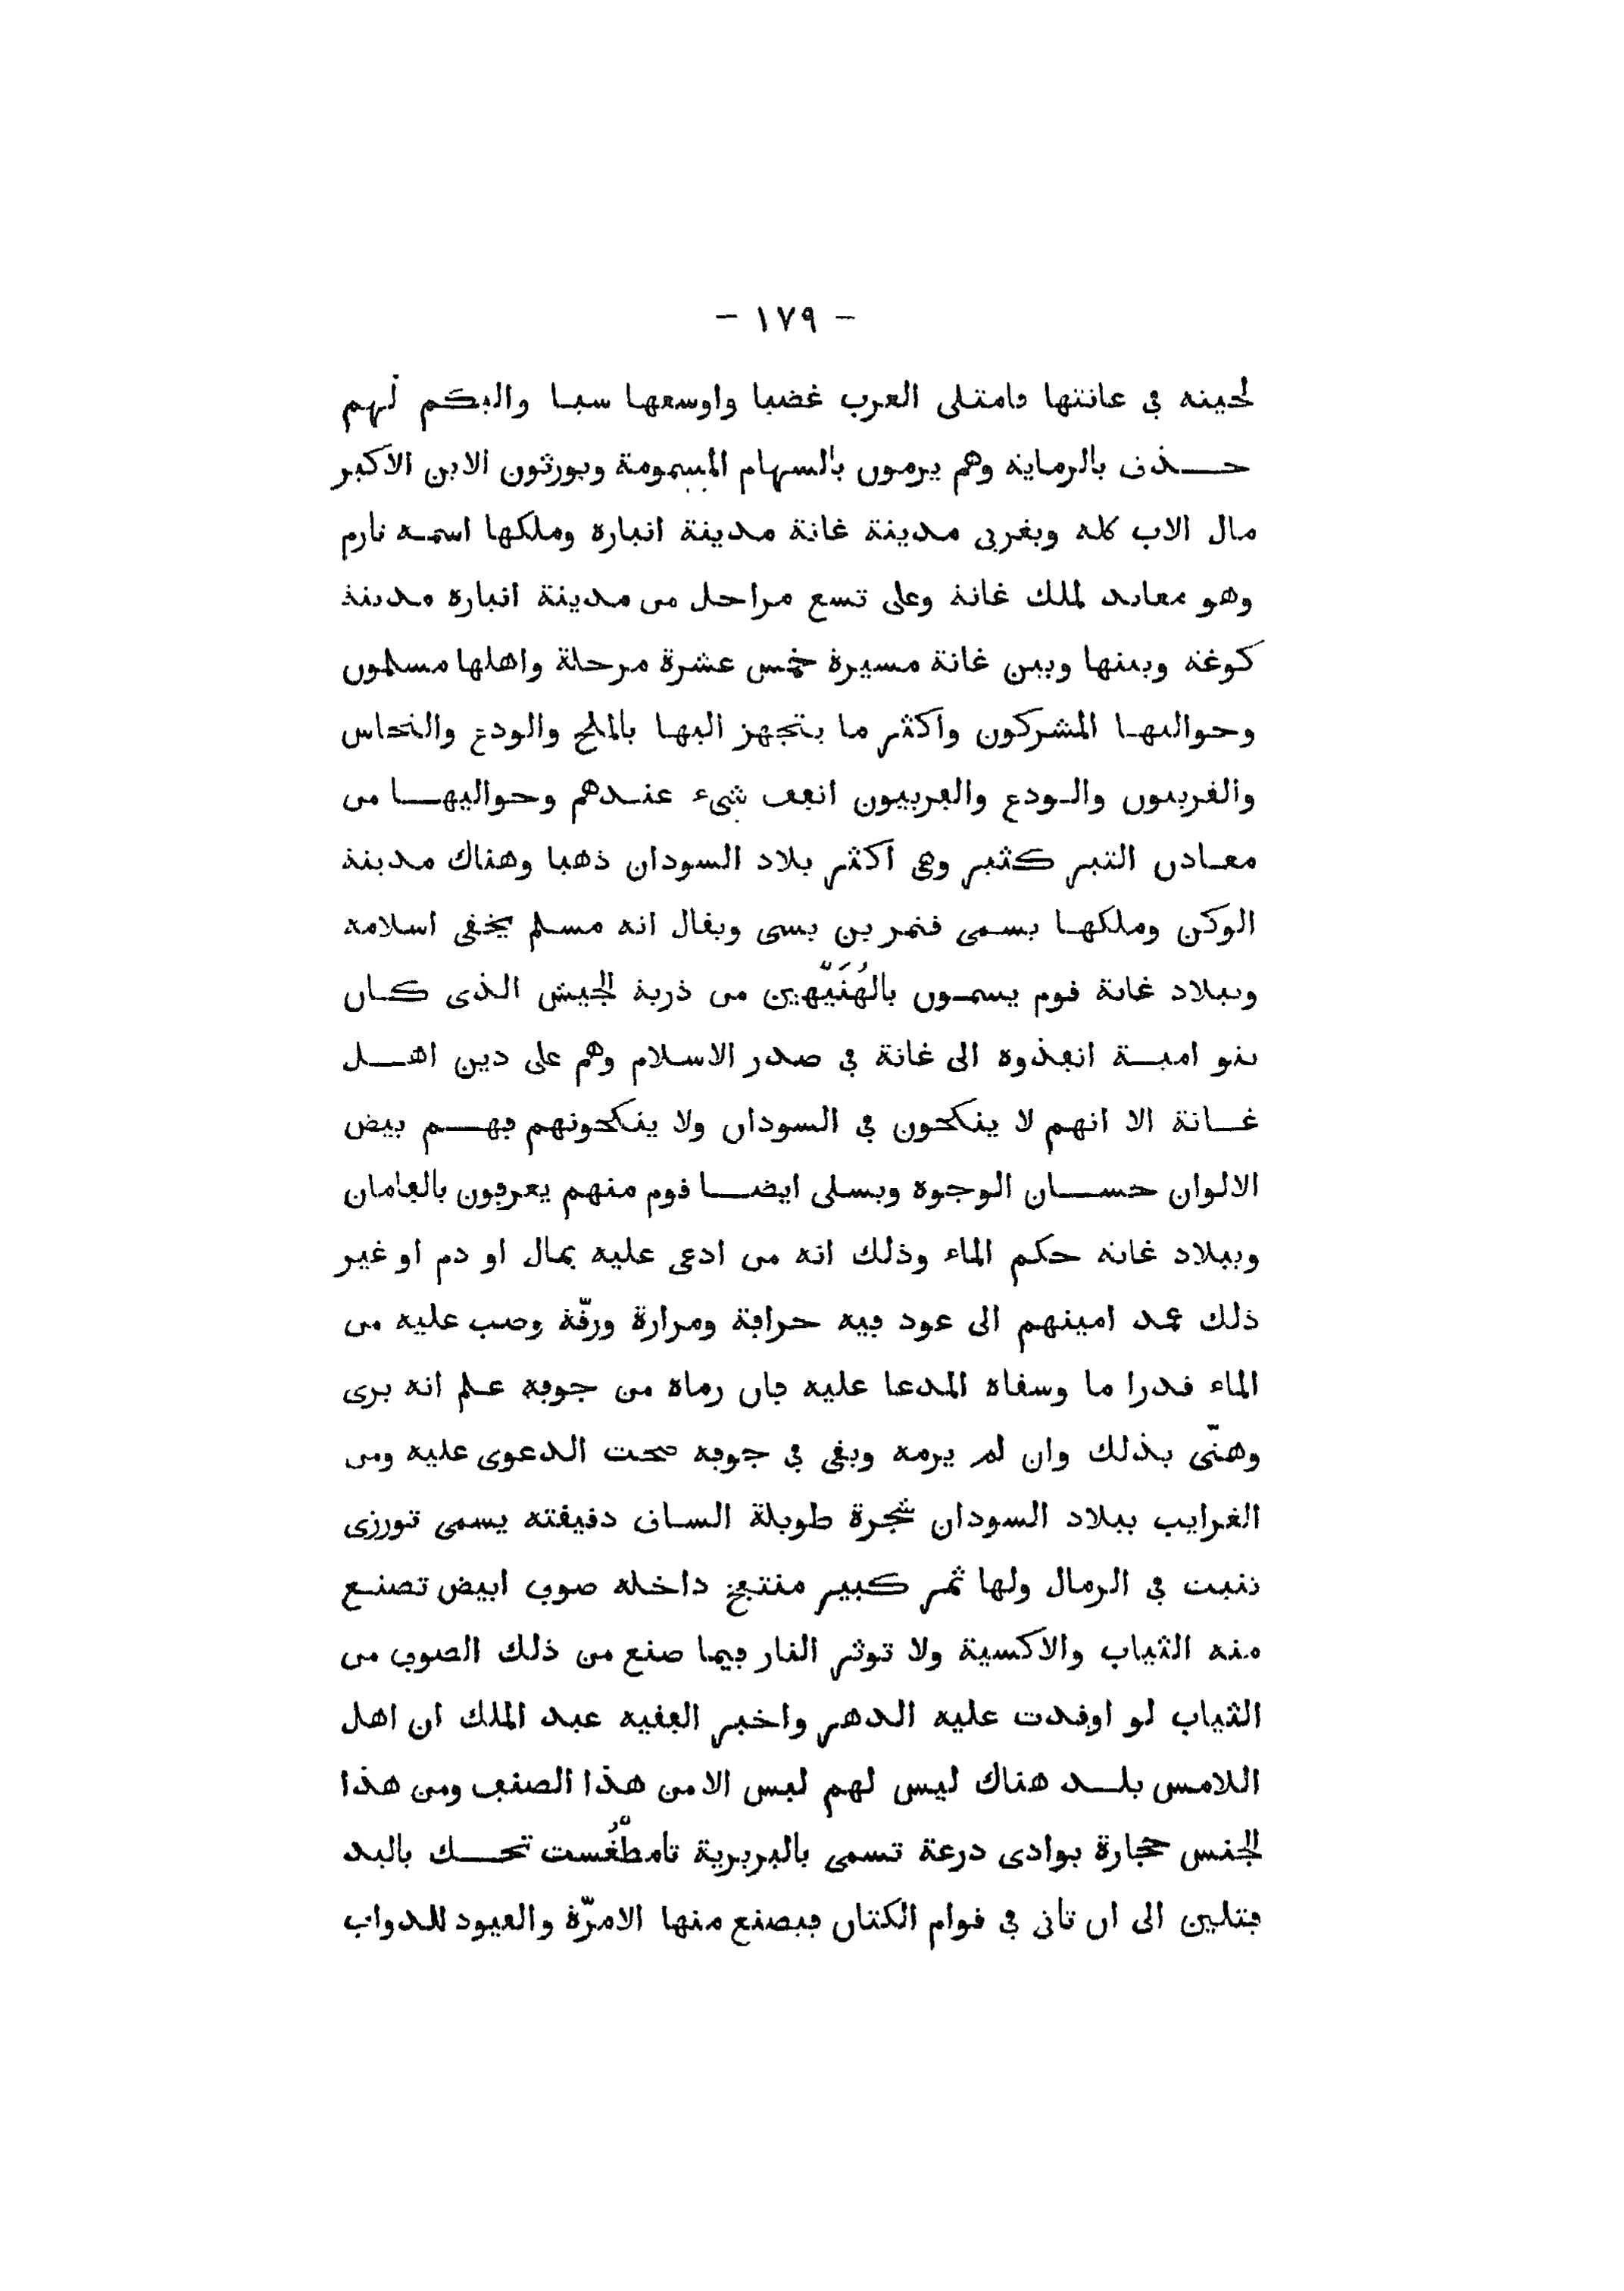 - ١٧٩ -
لحينه في عانتها فامتلى العرب غضبا واوسعها سبا والبكم لهم
حذق بالرماية وهم يرمون بالسهام المسمومة ويورثون الابن الاكبر
مال الاب كله وبغربى مدينة غانة مدينة انبارة وملكها اسمه تارم
وهو معاند لملك غانة وعلى تسع مراحل من مدينة انبارة مدينة
كوغة وبينها وبين غانة مسيرة خمس عشرة مرحلة واهلها مسلمون
وحواليها المشركون واكثر ما يتجهز اليها بالملح والودع والنحاس
والفربيون والودع والفربيون انفق شىء عندهم وحواليها من
معادن التبر كثير وهى اكثر بلاد السودان ذهبا وهناك مدينة
الوكن وملكها يسمى قنمر بن بسى ويقال انه مسلم يخفى اسلامه
وببلاد غانة قوم يسمون بالهُنَيْهين من ذرية الجيش الذى كان
بنو امية انفذوه الى غانة في صدر الاسلام وهم على دين اهل
غانة الا انهم لا ينكحون في السودان ولا ينكحونهم فهم بيض
الالوان حسان الوجوه وبسلى ايضا قوم منهم يعرفون بالفامان
وببلاد غانة حكم الماء وذلك انه من ادعى عليه بمال او دم او غير
ذلك عمد امينهم الى عود فيه حرافة ومرارة ورقّة وصب عليه من
الماء قدرا ما وسقاه المدعا عليه فان رماه من جوفه علم انه برى
وهنّى بذلك وان لم يرمه وبقى في جوفه صحت الدعوى عليه ومن
الغرايب ببلاد السودان شجرة طويلة الساق دقيقته يسمى تورزى
تنبت في الرمال ولها ثمر كبير منتفخ داخله صوف ابيض تصنع
منه الثياب والاكسية ولا توثر النار فيما صنع من ذلك الصوف من
الثياب لو اوقدت عليه الدهر واخبر الفقيه عبد الملك ان اهل
اللامس بلد هناك ليس لهم لبس الا من هذا الصنف ومن هذا
الجنس حجارة بوادى درعة تسمى بالبربرية تامطّغُست تحك باليد
فتلين الى ان تاتى في قوام الكتان فيصنع منها الامرّة والقيود للدواب